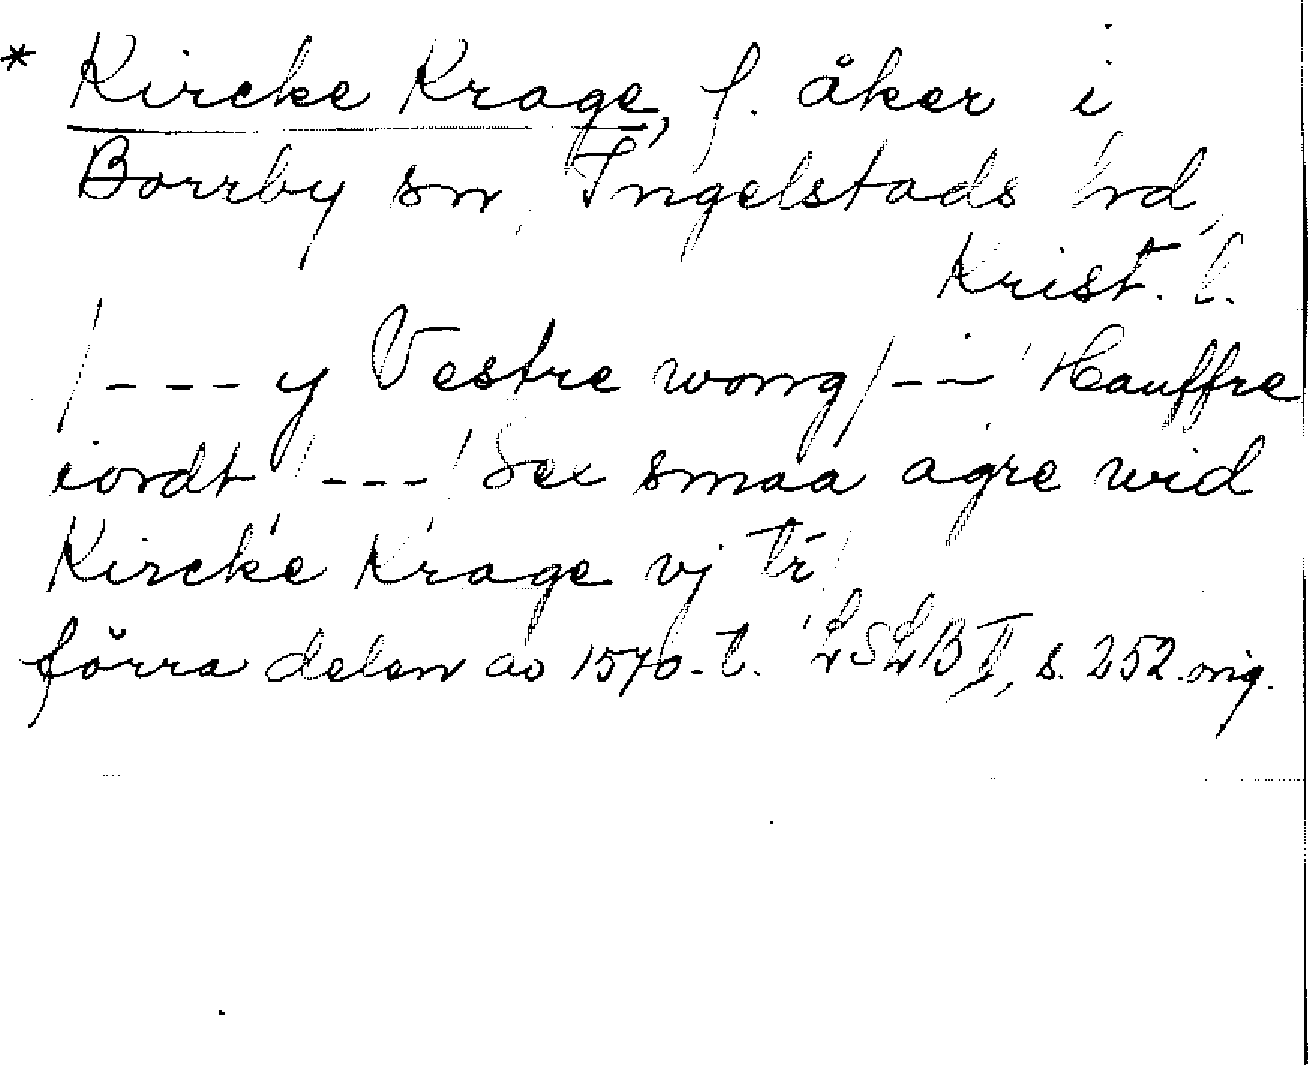 * Kircke Krage, f. åker i
Borrby sn, Ingelstads hd,
Krist. l.
/---y Vestre wong/--- Hauffre
iordt /---/ Sex smaa agre wid
Kircke Krage vj tr
förra delen av 1570-t. LSLB II, s. 252. orig.